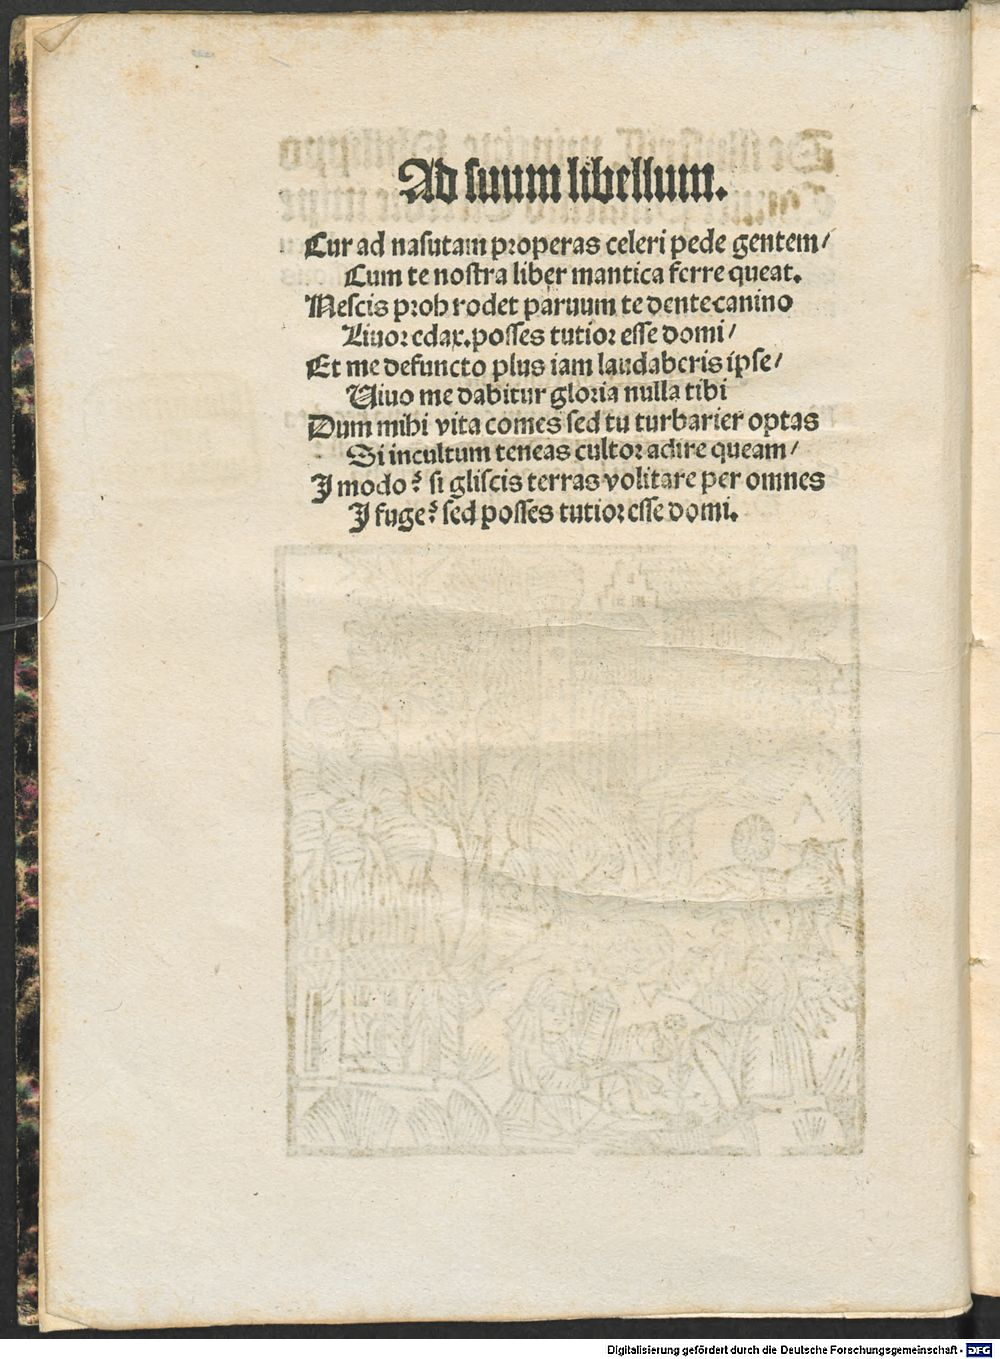 Ad suum libellum.
Cur ad nasutam properas celeri pede gentem/
Cum te nostra liber mantica ferre queat.
Nescis proh rodet paruum te dente canino
Liuor edax. posses tutior esse domi/
Et me defuncto plus iam laudaberis ipse/
Uiuo me dabitur gloria nulla tibi
Dum mihi vita comes sed tu turbarier optas
Si incultum teneas cultor adire queam/
I modo? si gliscis terras volitare per omnes
I fuge? sed posses tutior esse domi.
Digitalisierung gefördert durch die Deutsche Forschungsgemeinschaft - DFG